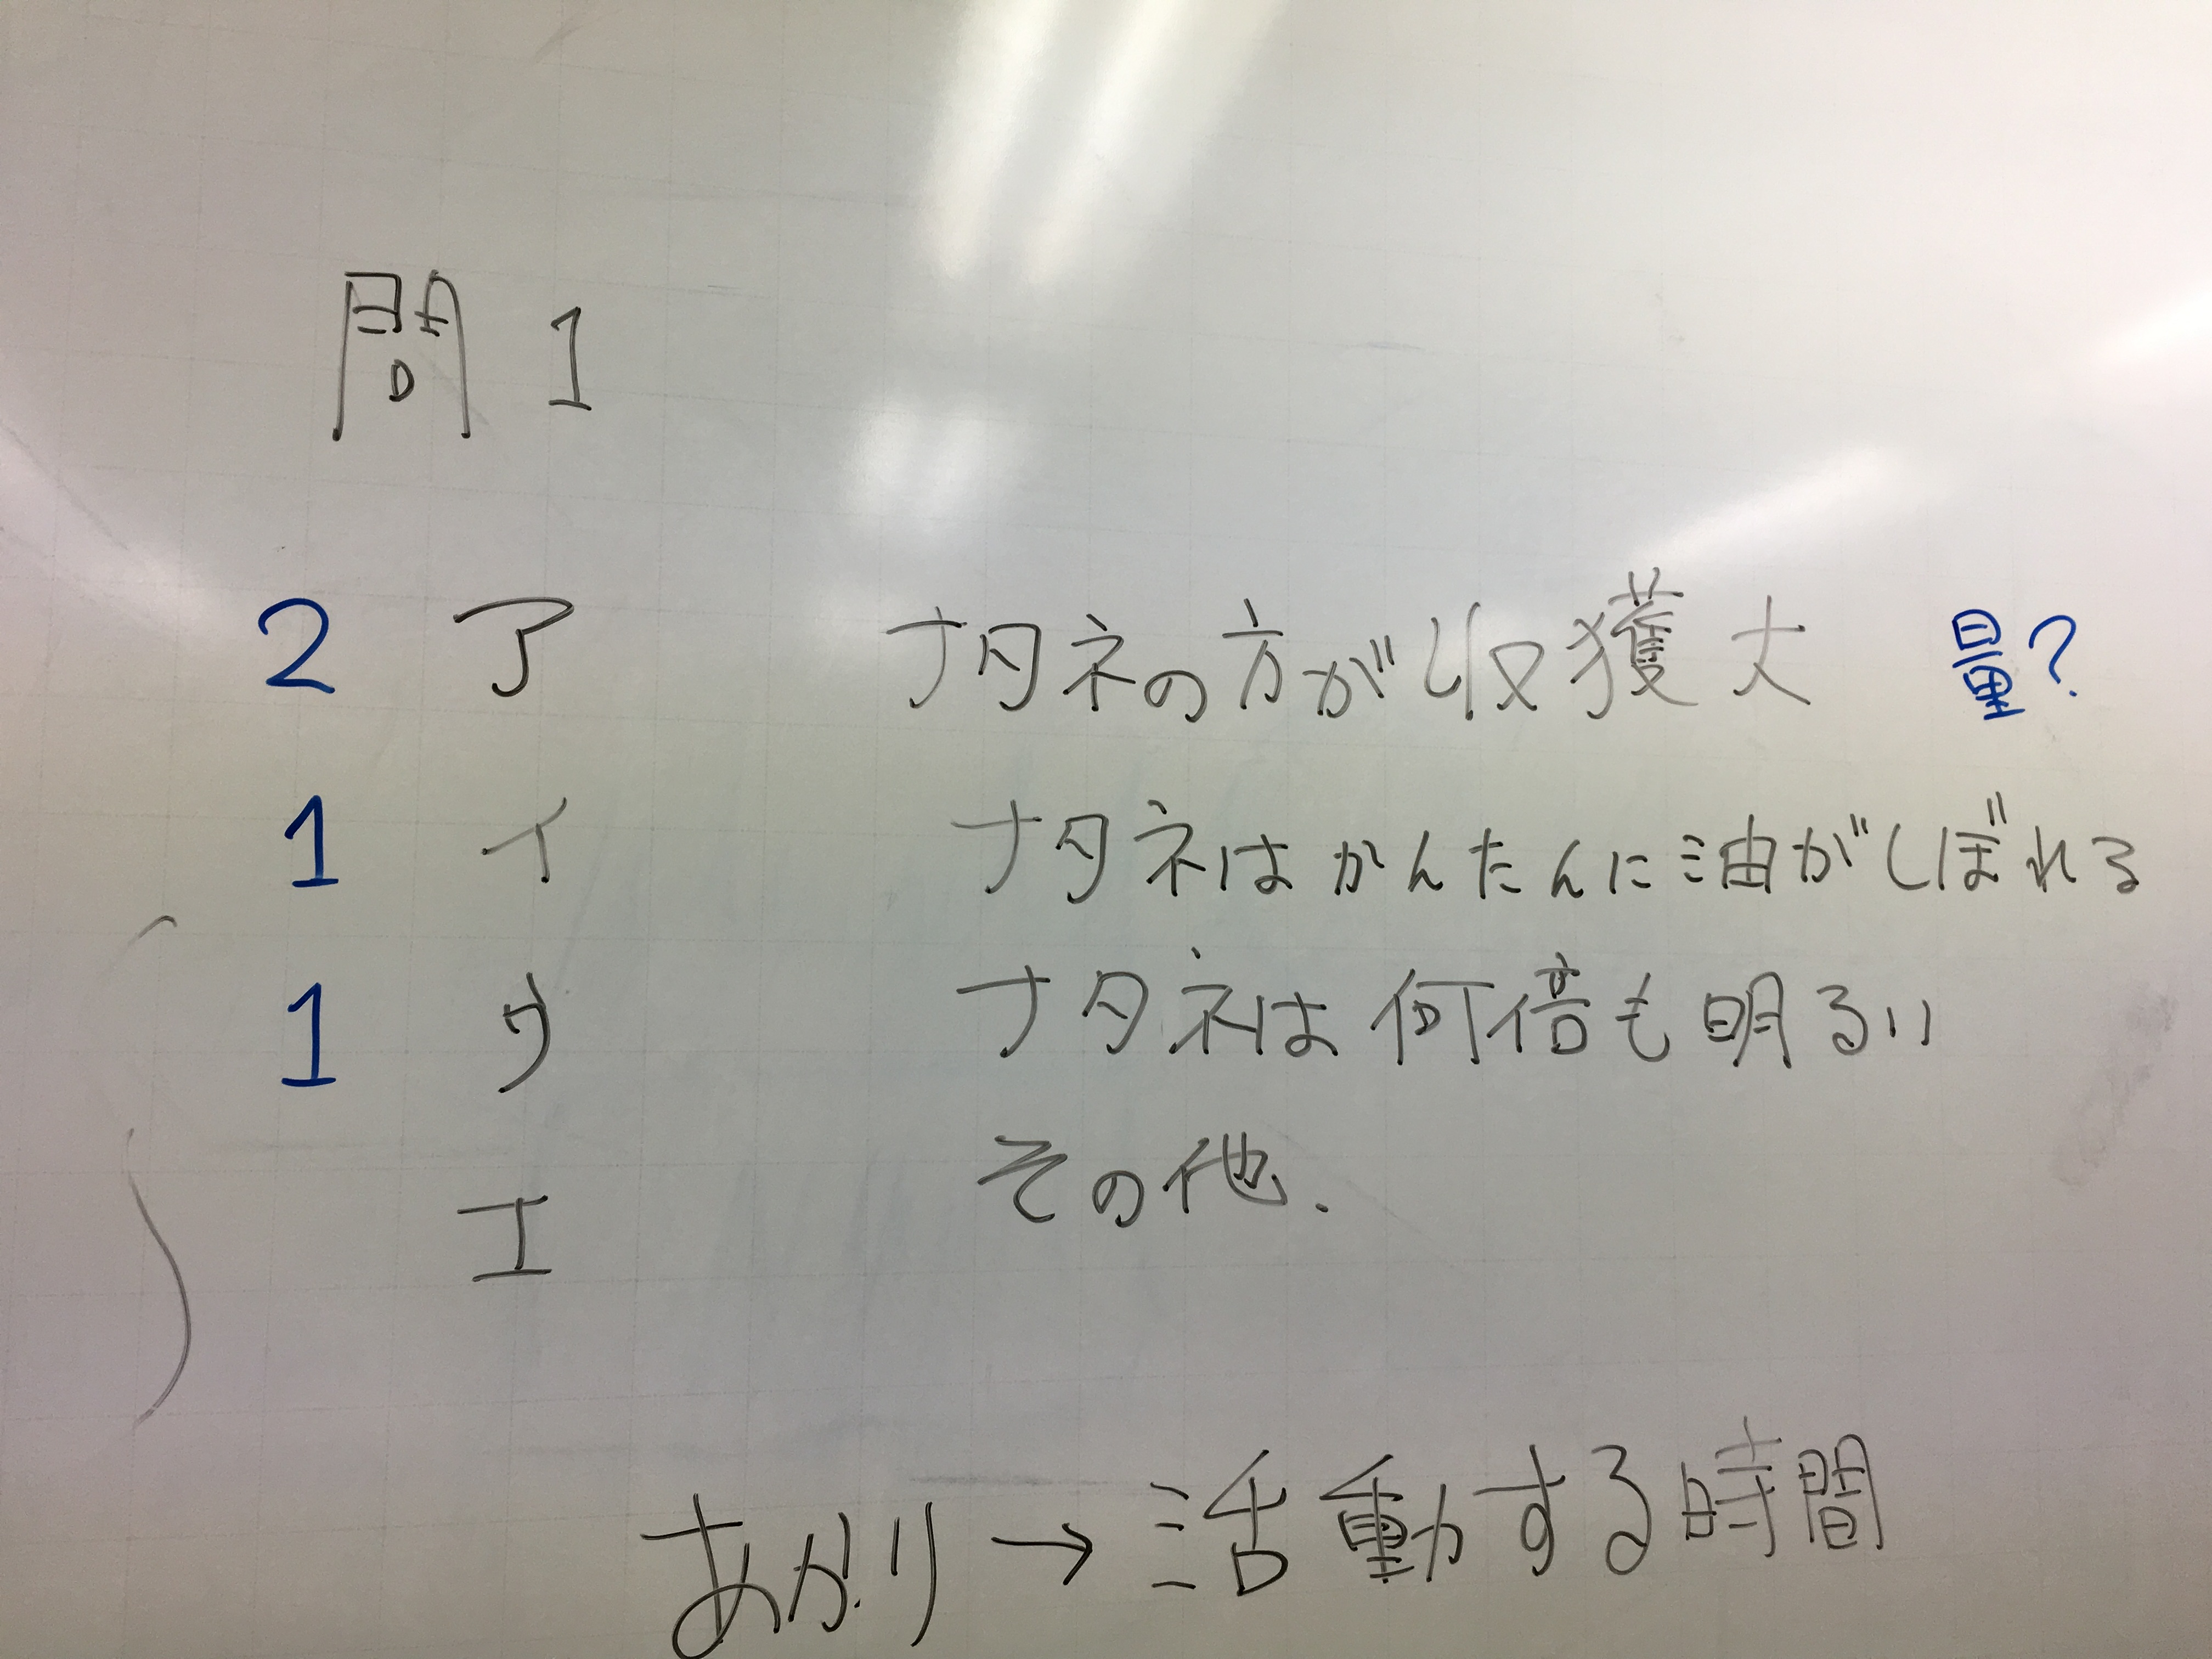 問1
2 ア ナタネの方が収獲大 量?
1 イ ナタネはかんたんに油がしぼれる
1 ウ ナタネは何倍も明るい
エ その他.
あかり→活動する時間